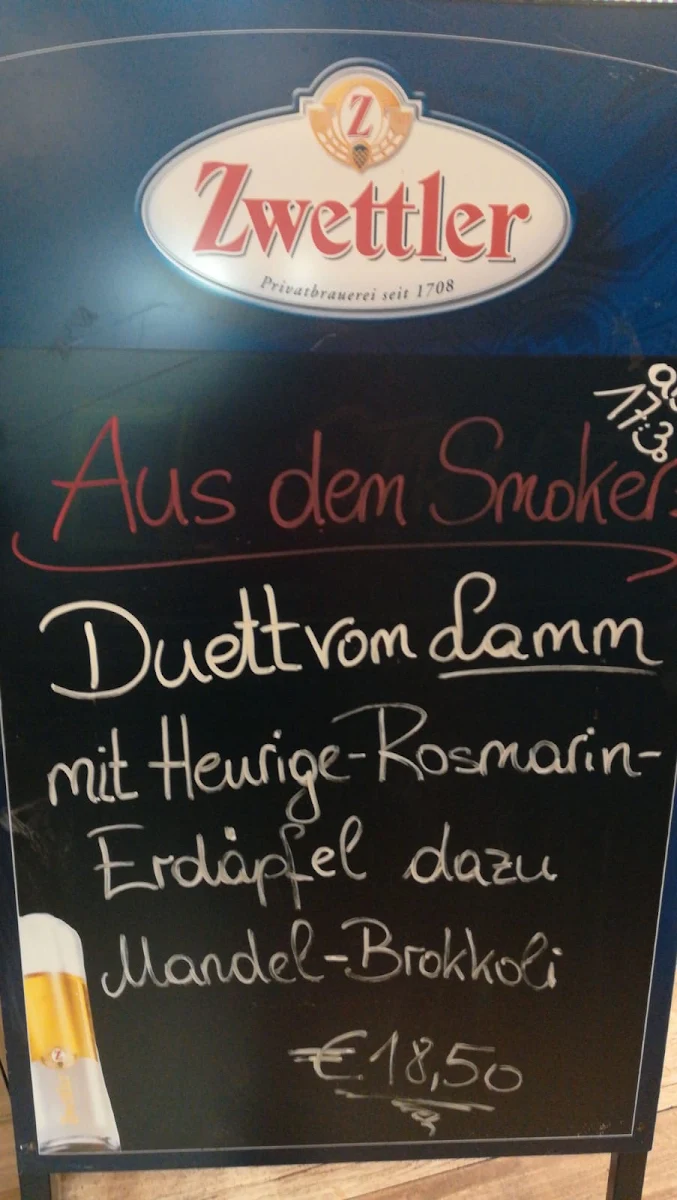 Z
Zwettler
Privatbrauerei seit 1708
17:30
Aus dem Smoker
Duett vom Lamm
mit Heurige-Rosmarin-
Erdäpfel dazu
Mandel-Brokkoli
€ 18,50